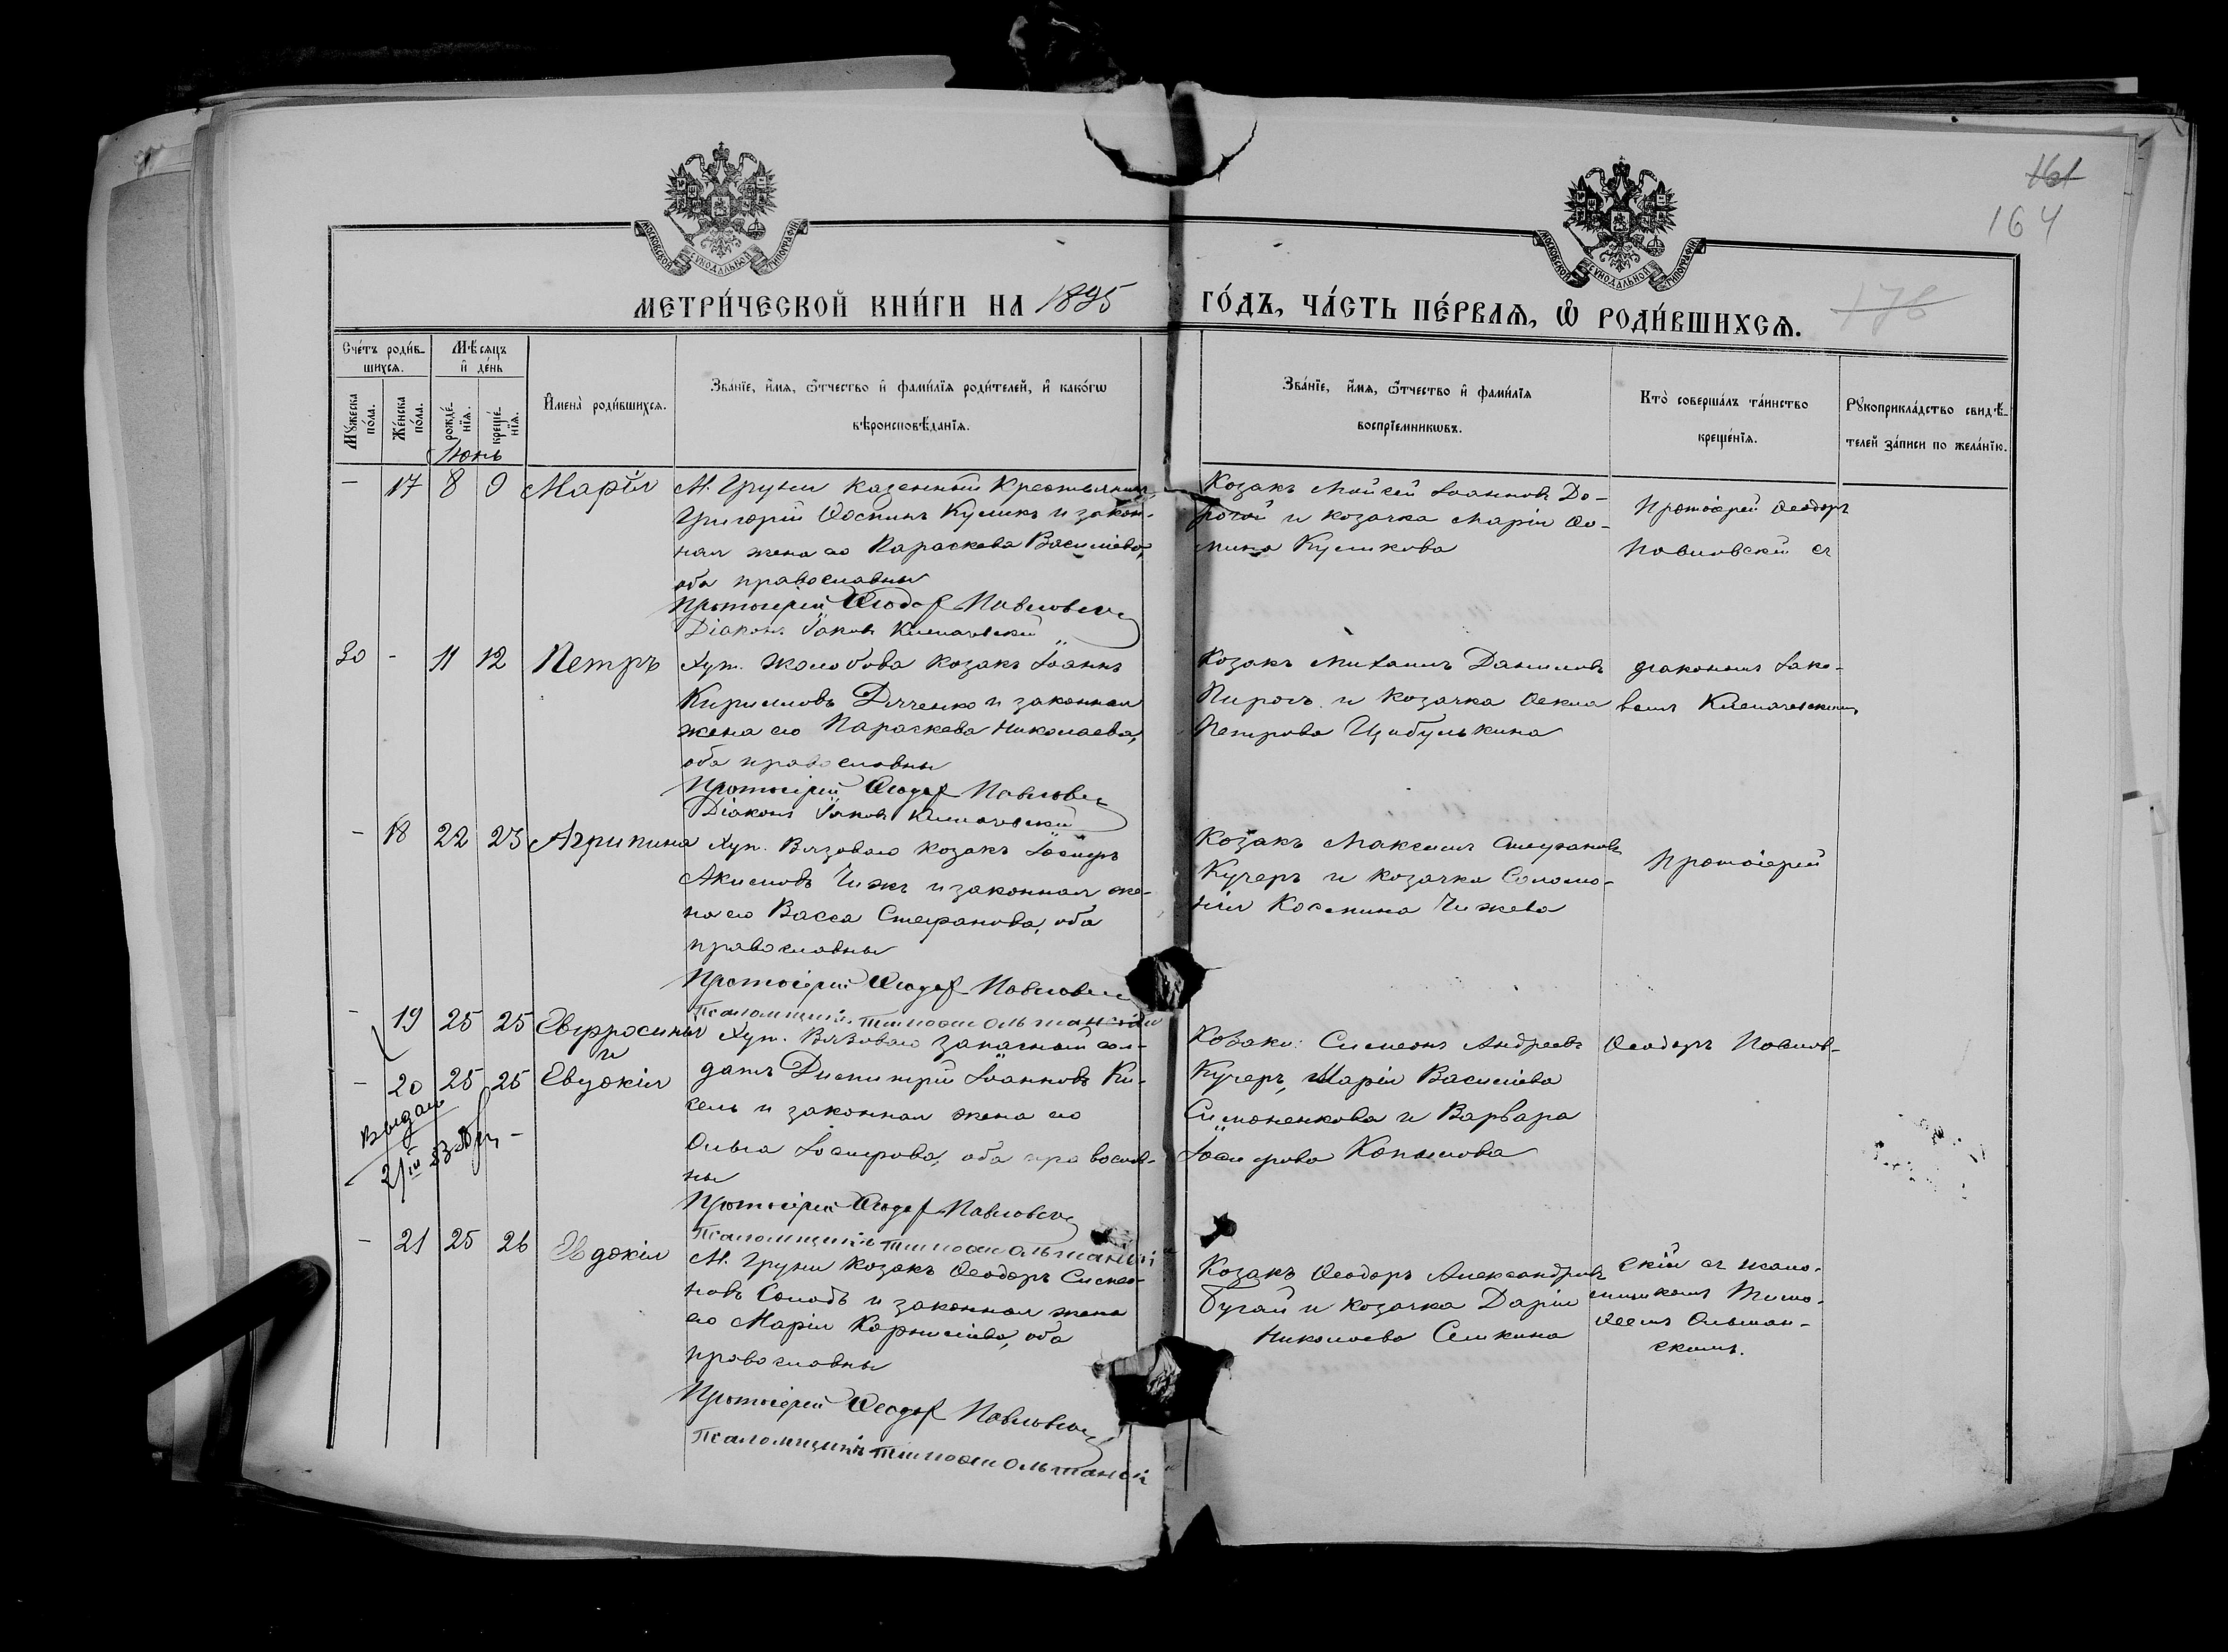 161
164
МОСКОВСКОЙ СѴНОДАЛЬНОЙ ТИПОГРАФІИ
МОСКОВСКОЙ СѴНОДАЛЬНОЙ ТИПОГРАФІИ
МЕТРИ́ЧЕСКОЙ КНИ́ГИ НА 1895 ГО́ДЪ, ЧА́СТЬ ПЕ́РВАѦ, Ѡ҆ РОДИ́ВШИХСѦ.
178
Сче́тъ роди́в-
шихсѧ.
Мꙋжеска по́ла.
Же́нска по́ла.
Мѣ́сѧцъ
и҆ де́нь
рожде́-
нїѧ.
креще́-
нїѧ.
И҆мена̀ роди́вшихсѧ.
Зва́нїе, и҆́мѧ, ѻ҆́тчество и҆ фами́лїѧ роди́телей, и҆ како́гѡ
вѣроисповѣ́данїѧ.
Зва́нїе, и҆́мѧ, ѻ҆́тчество и҆ фами́лїѧ
воспрїе́мникѡвъ.
Кто̀ соверша́лъ та́инство
креще́нїѧ.
Рꙋкоприкла́дство свидѣ́-
телей за́писи по жела́нїю.
Іюнь
- 17 8 9 Марія
М. Груни казенный крестьянинъ
Григорій Ѳоминъ Куликъ и закон-
ная жена его Параскева Василіева,
оба православны
Протоіерей Ѳеодоръ Павловскій
Діаконъ Іаковъ
Козакъ Моѵсей Іоанновъ До-
рогой и козачка Марія Ѳо-
мина Куликова
Протоіерей Ѳеодоръ
Павловскій съ
30 - 11 12 Петръ
Хут. Жолобова козакъ Іоаннъ
Кирилловъ Дяченко и законная
жена его Параскева Николаева,
оба православны
Протоіерей Ѳеодоръ Павловскій
Діаконъ Іаковъ
Козакъ Михаилъ Даниловъ
Пирогъ и козачка Ѳекла
Петрова Цыбулькина
діакономъ Іако-
вомъ
- 18 22 23 Агрипина
Хут. Вязоваго козакъ Іосифъ
Акимовъ Чижъ и законная же-
на его Васса Стефанова, оба
православны
Протоіерей Ѳеодоръ Павловскій
Псаломщикъ Тимоѳей Ольшанскій
Козакъ Максимъ Стефановъ
Кучеръ и козачка Соломо-
нія Космина Чижева
Протоіерей
- 19 25 25 Евфросинія
и
- 20 25 25 Евдокія
Хут. Вязоваго запасный сол-
датъ Димитрій Іоанновъ Ки-
сель и законная жена его
Ольга Іосифова, оба православ-
ны
Протоіерей Ѳеодоръ Павловскій
Псаломщикъ Тимоѳей Ольшанскій
Козаки: Симеонъ Андреевъ
Кучеръ, Марія Василіева
Симоненкова и Варвара
Іосифова Копылова
Ѳеодоръ Павлов-
- 21 25 26 Евдокія
М. Груни козакъ Ѳеодоръ Симео-
новъ Солодъ и законная жена
его Марія Корниліева, оба
православны
Протоіерей Ѳеодоръ Павловскій
Псаломщикъ Тимоѳей Ольшанскій
Козакъ Ѳеодоръ Александровъ
Бугай и козачка Дарія
Николаева Семкина
скій съ псало-
мщикомъ Тимо-
ѳеемъ Ольшан-
скимъ.